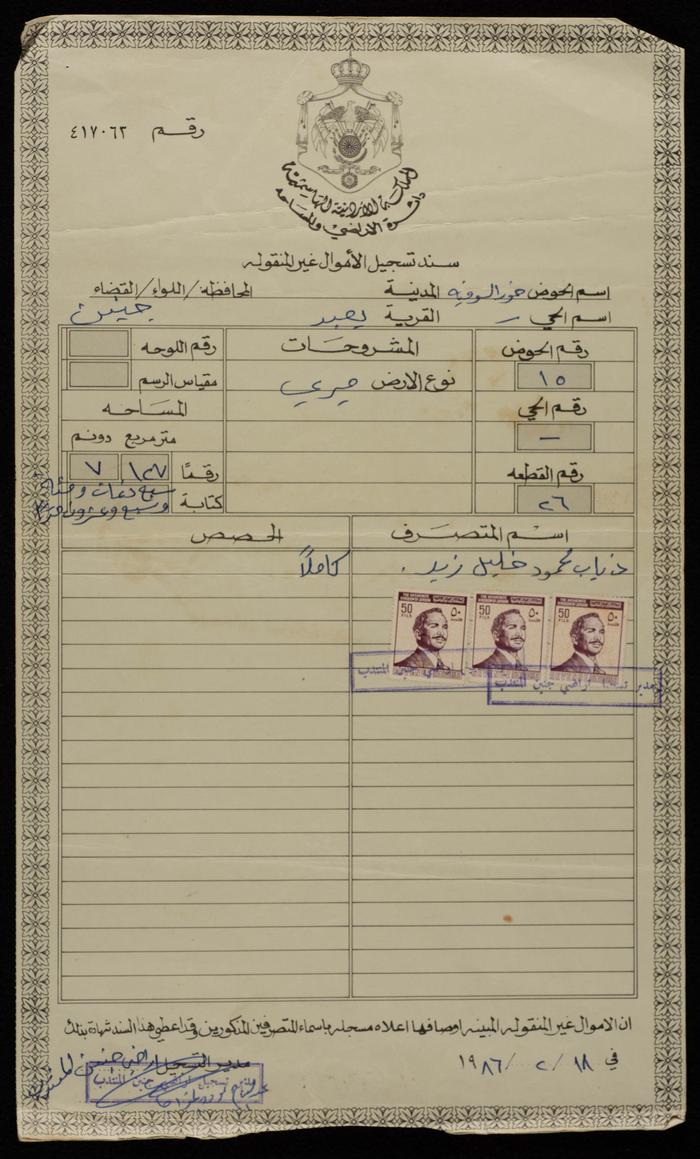 رقم ٤١٧٠٦٢
المملكة الأردنية الهاشمية
دائرة الاراضي والمساحة
سند تسجيل الأموال غير المنقوله
اسم الحوض خور المدينة المحافظة/اللواء/القضاء
اسم الحي – القرية يعبد جنين
رقم الحوض المشروحات رقم اللوحه
١٥ نوع الارض ميري مقياس الرسم
رقم الحي المساحه
– متر مربع دونم
رقم القطعه رقمًا ١٢٧ ٧
٢٦ كتابة سبع دونمات ومئة
وسبع وعشرون
اسم المتصرف الحصص
ذياب محمود خليل زيد . كاملاً
THE HASHEMITE KINGDOM OF JORDAN
50 FILS ٥٠
THE HASHEMITE KINGDOM OF JORDAN
50 FILS ٥٠
THE HASHEMITE KINGDOM OF JORDAN
50 FILS ٥٠
اراضي جنين المنتدب
مدير تسجيل اراضي جنين المنتدب
ان الاموال غير المنقوله المبينه اوصافها اعلاه مسجله باسماء المتصرفين المذكورين وقد اعطي هذا السند شهادة بذلك
في ١٨ / ٢ / ١٩٨٦
مدير التسجيل اراضي جنين المنتدب
مدير تسجيل اراضي جنين المنتدب